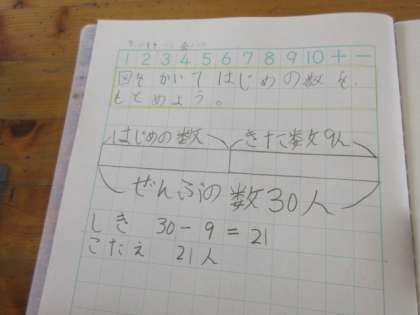 1 2 3 4 5 6 7 8 9 10 + -
図をかいてはじめの数を
もとめよう。
はじめの数 きた数9人
ぜんぶの数30人
しき 30-9=21
こたえ 21人